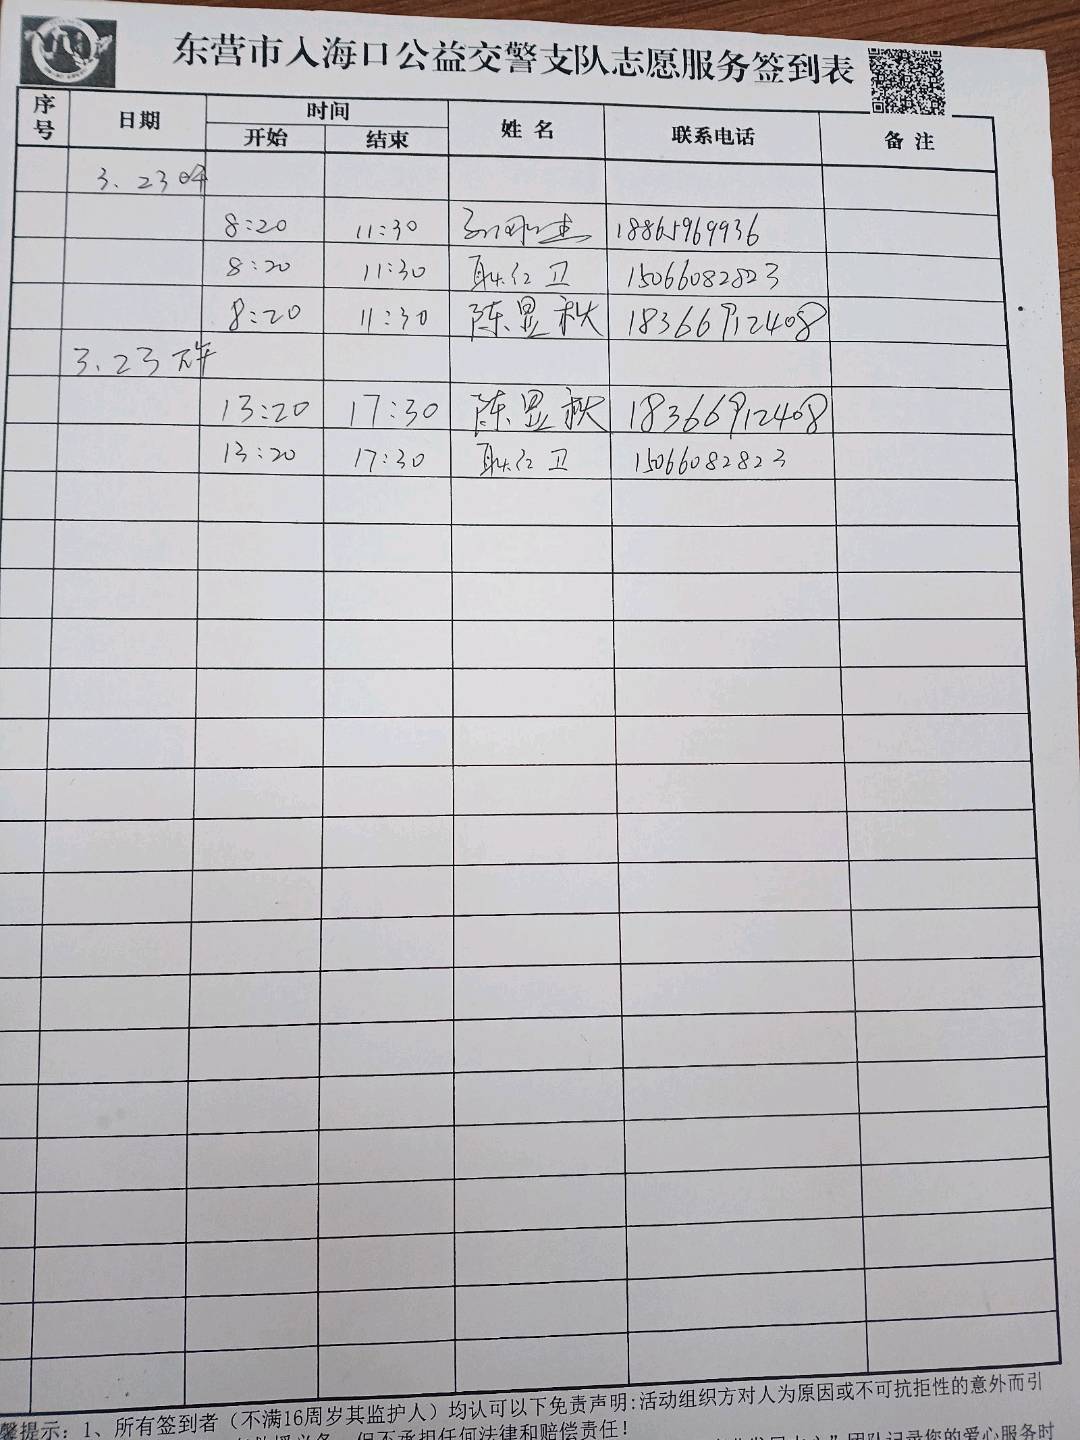 东营市入海口公益交警支队志愿服务签到表
序号 日期 时间 姓名 联系电话 备注
开始 结束
3.23
8:20 11:30 18865969936
8:20 11:30 耿仁卫 15066082823
8:20 11:30 陈昱秋 18366912408
3.23 下午
13:20 17:30 陈昱秋 18366912408
13:20 17:30 耿仁卫 15066082823
馨提示：1、所有签到者（不满16周岁其监护人）均认可以下免责声明:活动组织方对人为原因或不可抗拒性的意外而引
但不承担任何法律和赔偿责任！
团队记录您的爱心服务时